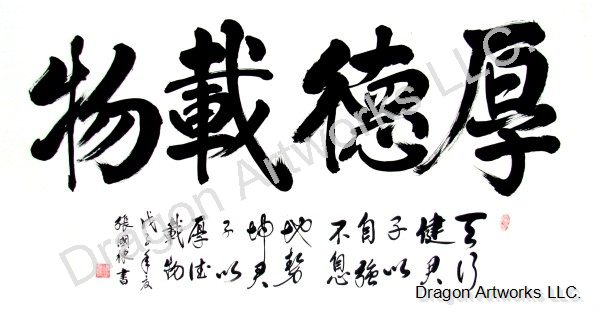 厚德載物
天行
健君
子以
自強
不息
地勢
坤君
子以
厚德
載物
戊子年夏
張國書
Dragon Artworks LLC.
Dragon Artworks LLC.